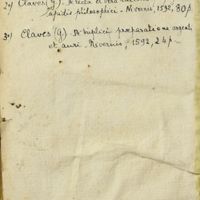 2) Claves (G). - A recta et vera
lapidis philosophici. - Nivernii, 1592, 80 p.
3) Claves (G). - A triplici preparatione argenti
et auri. Nivernis, 1592, 24 p.